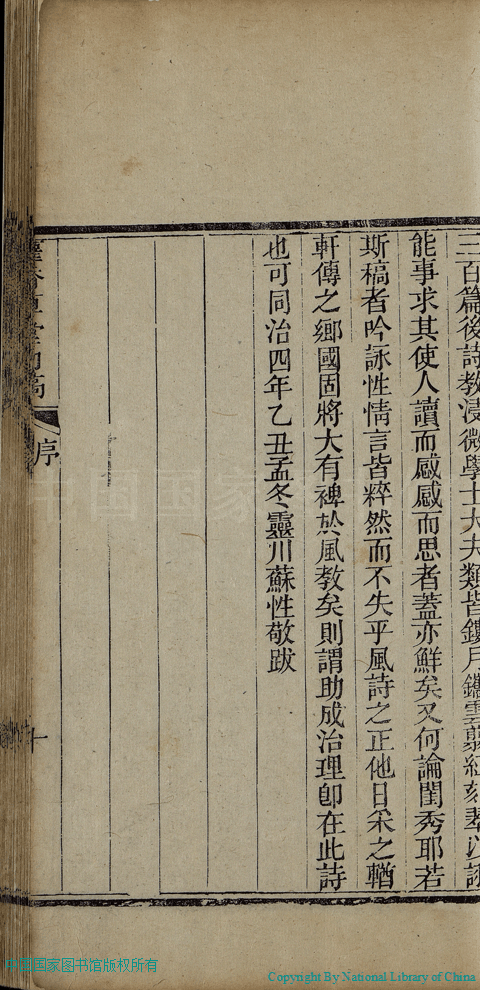 三百篇後詩教浸微學士大夫類皆鏤月鐫雲翦紅刻翠以詡
能事求其使人讀而感感而思者蓋亦鮮矣又何論閨秀耶若
斯稿者吟詠性情言皆粹然而不失乎風詩之正他日采之輶
軒傳之鄉國固將大有裨於風教矣則謂助成治理卽在此詩
也可同治四年乙丑孟冬靈川蘇性敬跋
序
十
中国国家图书馆版权所有
Copyright By National Library of China